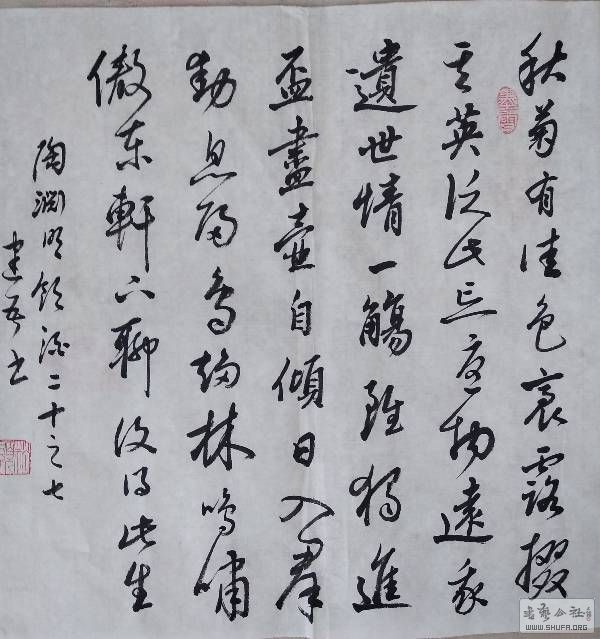 秋菊有佳色裛露掇
其英泛此忘憂物遠我
遺世情一觴雖獨進
盃盡壺自傾日入群
動息歸鳥趨林鳴嘯
傲東軒下聊復得此生
陶淵明飲酒二十之七
建吾书
书艺公社
WWW.SHUFA.ORG